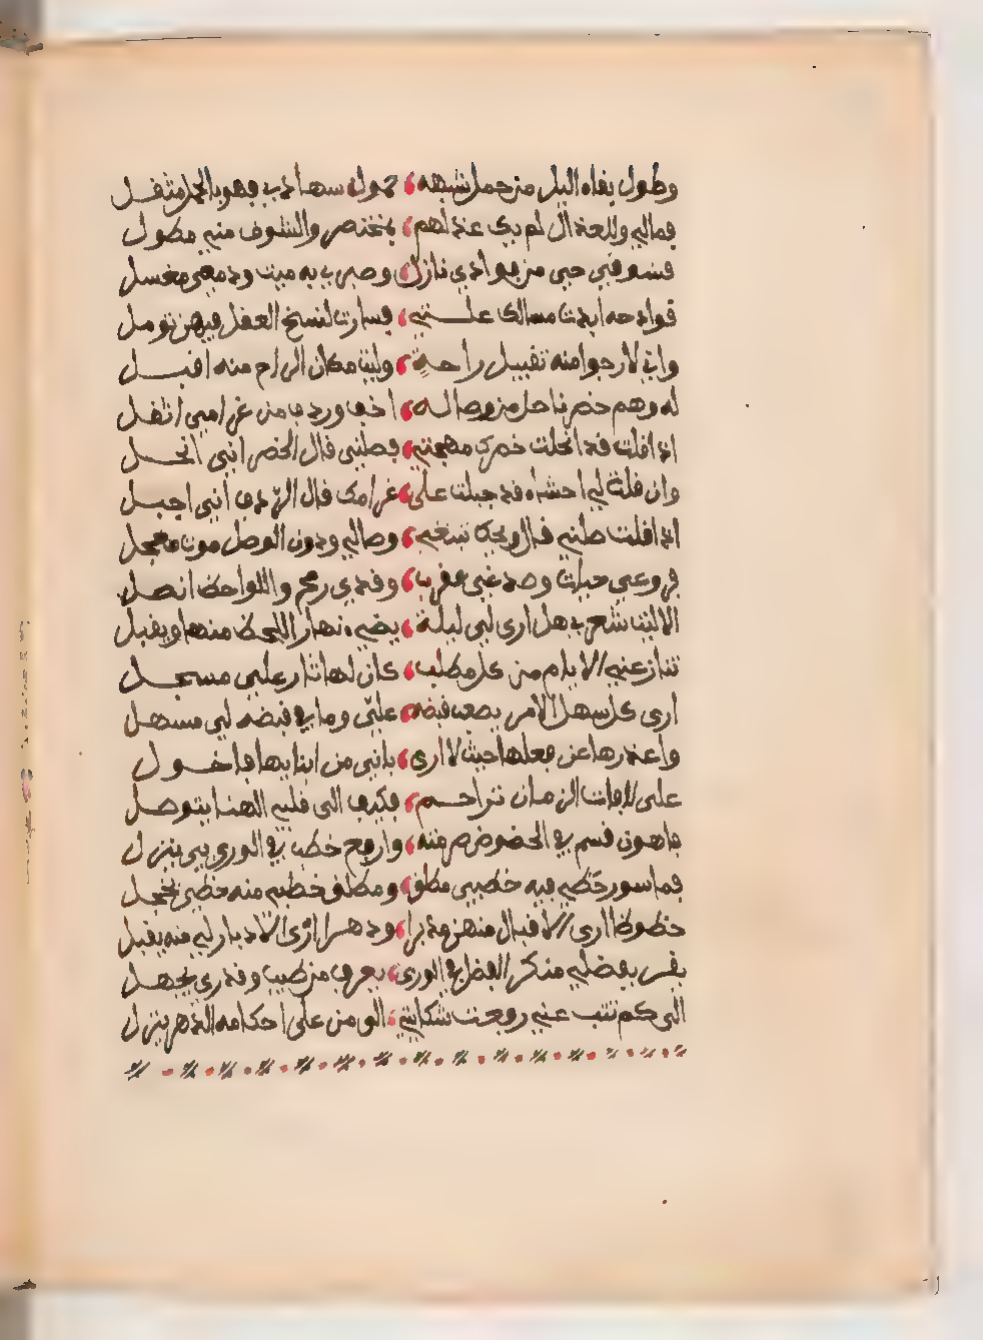 وطول بقاه اليل من حمل شبهه ، حمول سهادي فهو بالحمل مثقل
فمالي وللعذال لم يك عذلهم ، بمختصر والشوق مني مطول
فشوقي حي من فوادي نازل ، وصبري به ميت ودمعي مغسل
قوادحه ابدت مسالك علتي ، فسارت لنسخ العقل فيهن تومل
واني لارجوا منه تقبيل راحة ، وليت مكان الراح منه اقبل
له وهم خصر ناحل من وصاله ، اخف وردف من غرامي اثقل
اذا قلت قد انحلت خصرك مهجتي ، فصلني قال الخصر اني انحل
وان قلت لي احشاء قد جبلت على ، غرامك قال الردف اني اجبل
اذا قلت صلني قال ويحك تبتغي ، وصالي ودون الوصل موت معجل
فروعي حيات وصدغي عقرب ، وقدي رمح واللواحظ انصل
الا ليت شعري هل ارى لي ليلة ، يضيء نهار اللحظ منها ويقبل
تنازعني الايام من كل مطلب ، كان لها ثار علي مسجل
ارى كل سهل الامر يصعب قبضه ، علي وما في قبضه لي مسهل
واعذرها عن فعلها حيث لا ارى ، باني من ابنايها فاخول
على لافات الزمان تزاحم ، فكيف الى قلبي الهنا يتوصل
فاهون قسم في الحضوض صرمته ، وارفع خطب في الورى بي ينزل
فماسور حظي فيه خطبي مطلق ، ومطلق خطبي منه حظي يخجل
حظوظا ارى الاقبال منهن مدبرا ، ودهرا ارى الادبار لي منه يقبل
يقر بفضلي منكر الفضل في الورى ، بعرف من طيب وقدري يجهل
الى كم تنب عني رفعت شكايتي ، الو من على احكامه الدهر ينزل